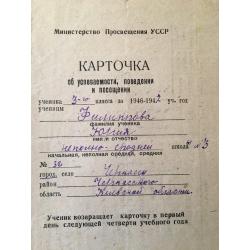 Министерство Просвещения УССР
КАРТОЧКА
об успеваемости, поведении
и посещении
ученика 7-го класса за 1946-1947 уч. год
ученицы Филиппова
фамилия ученика
Юлия
имя и отчество
неполно-средней школа № 3
начальная, неполная средняя, средняя
№ 36
город, село
район Черкасского
область Киевской области
Ученик возвращает карточку в первый
день следующей четверти учебного года